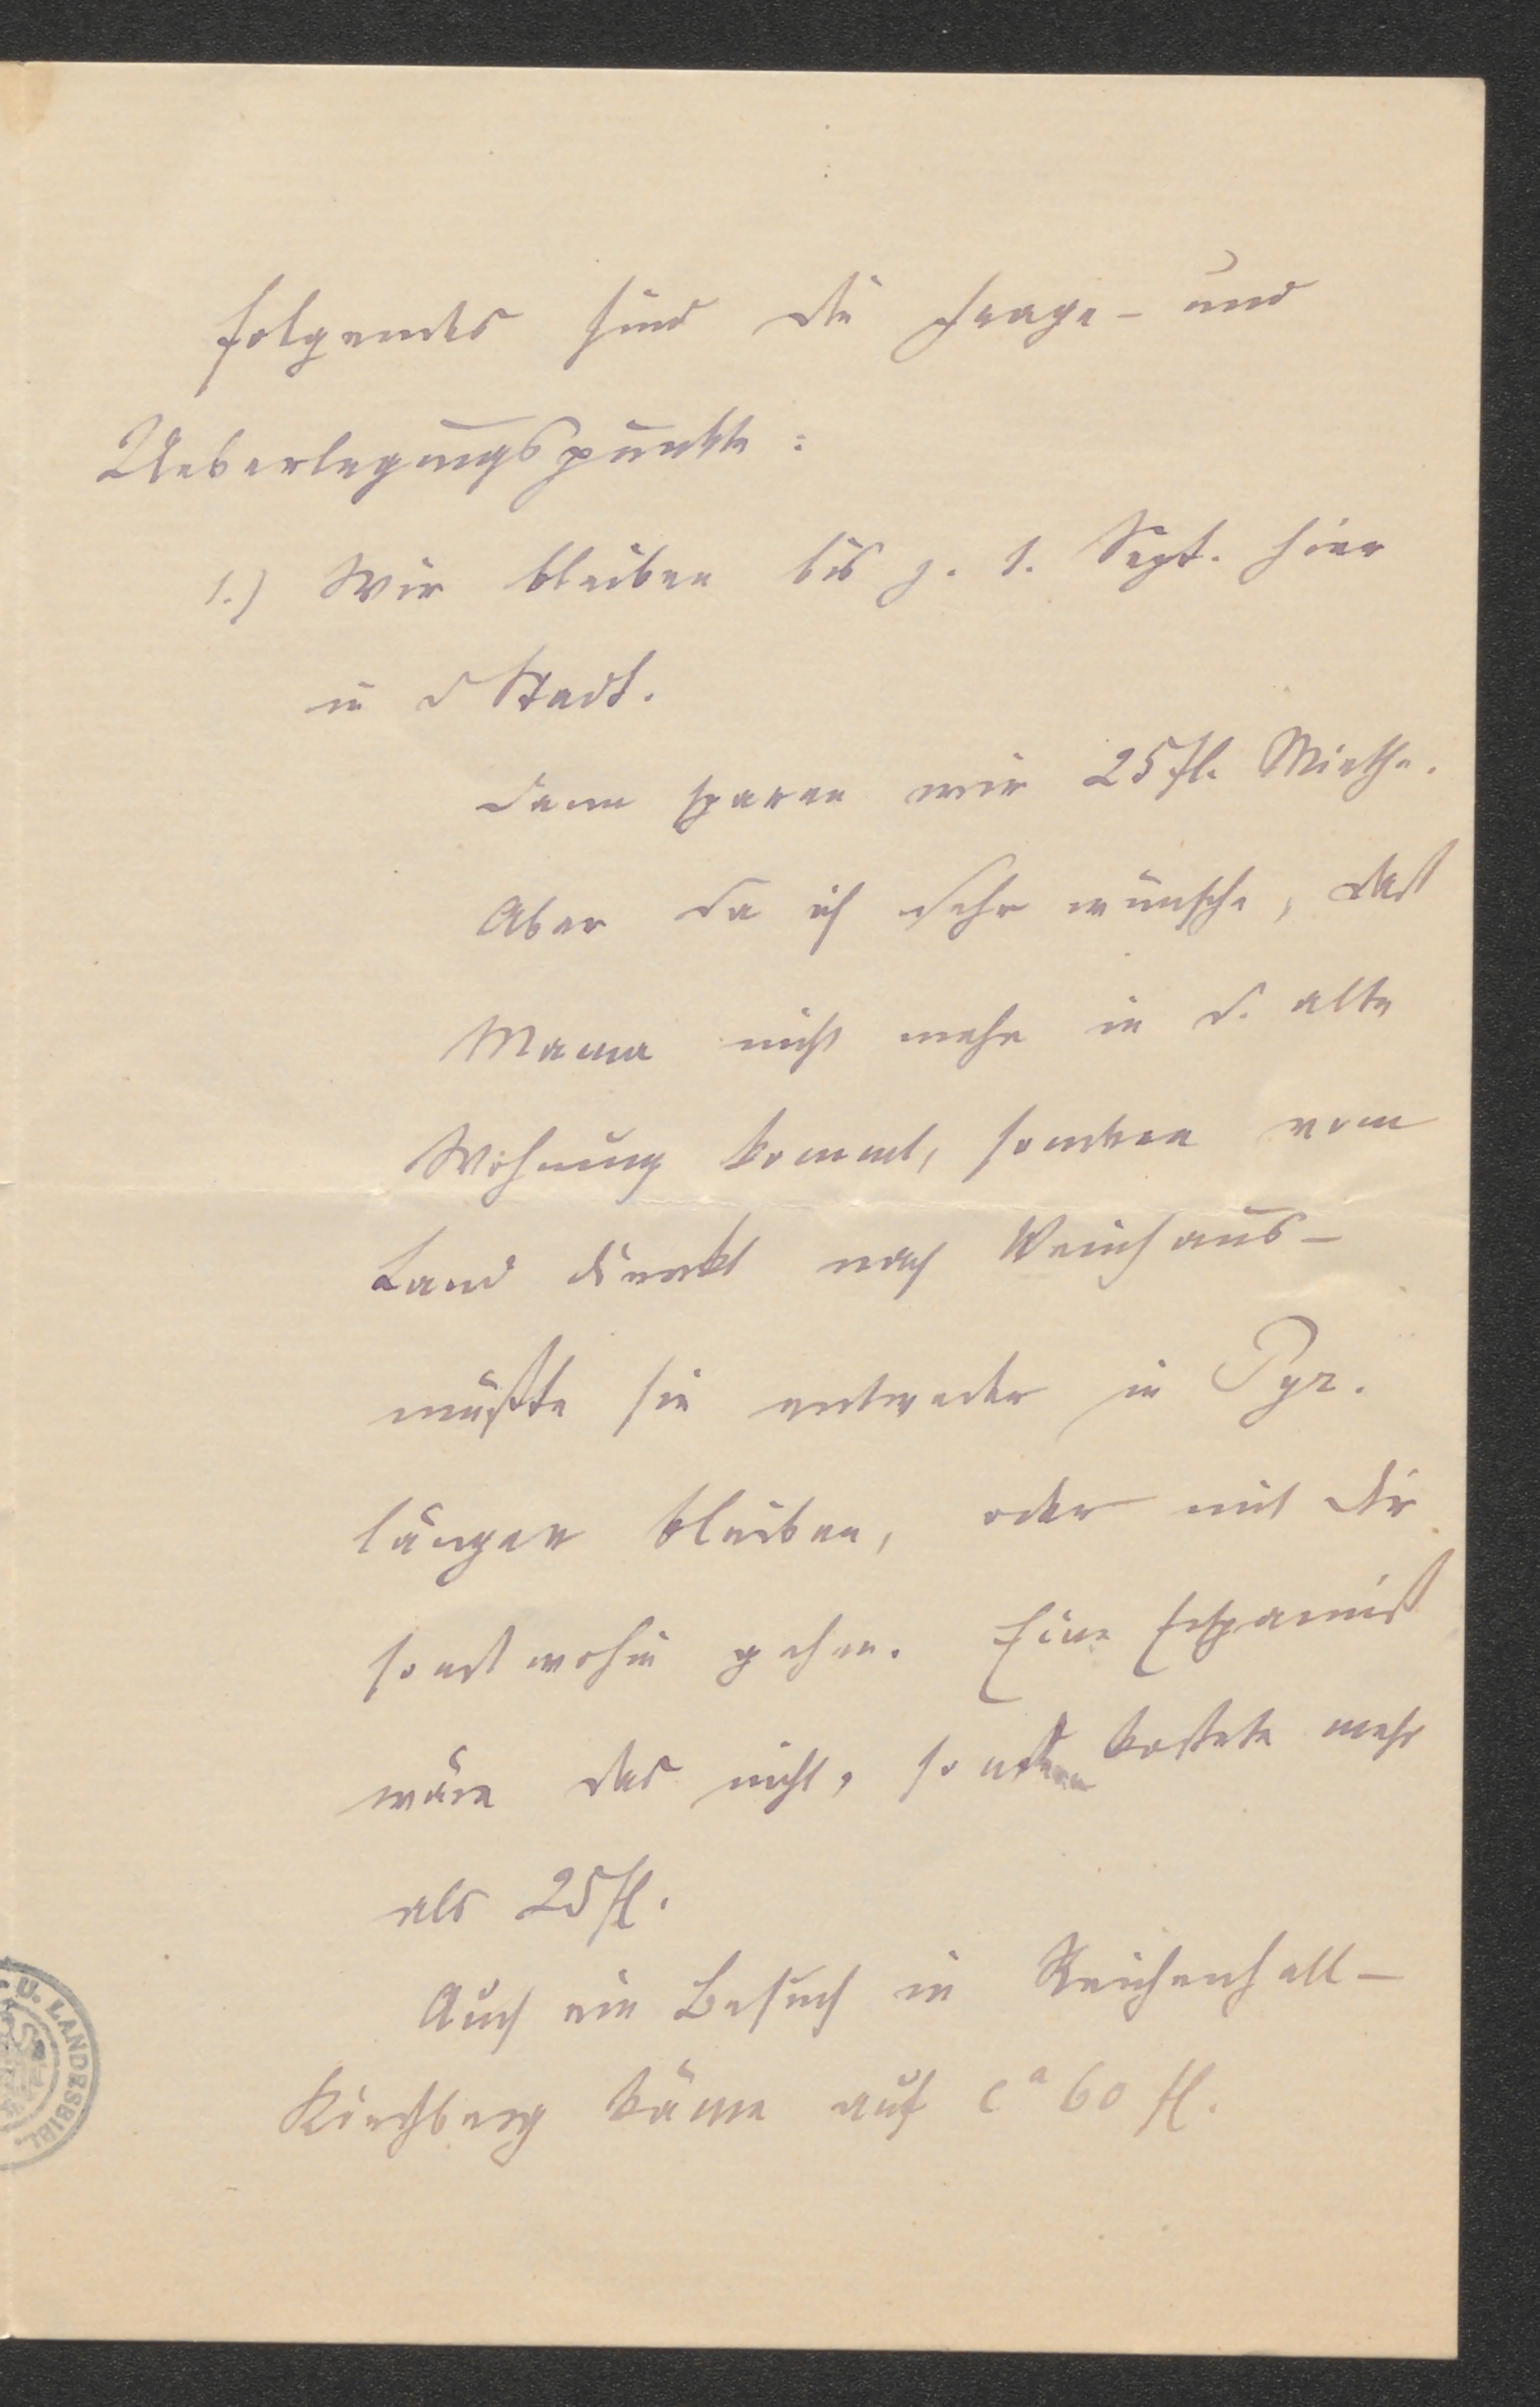 folgendes sind die Frage- und
Ueberlegungspunkte:
1.) Wir bleiben bis z. 1. Sept. hier
in d Stadt.
Dann sparen wir 25 fl. Miethe.
Aber da ich sehr wünsche, daß
Mama nicht mehr in d. alte
Wohnung kommt, sondern vom
Land direkt nach Weinhaus -
müßte sie entweder in Pyr.
länger bleiben, oder mit Dir
sonst wohin gehen. Eine Ersparniß
wäre das nicht, sondern kostete mehr
als 25 fl.
Auch ein Besuch in Reichenhall -
Kirchberg käme auf ca 60 fl.
U. LANDESBIBL.